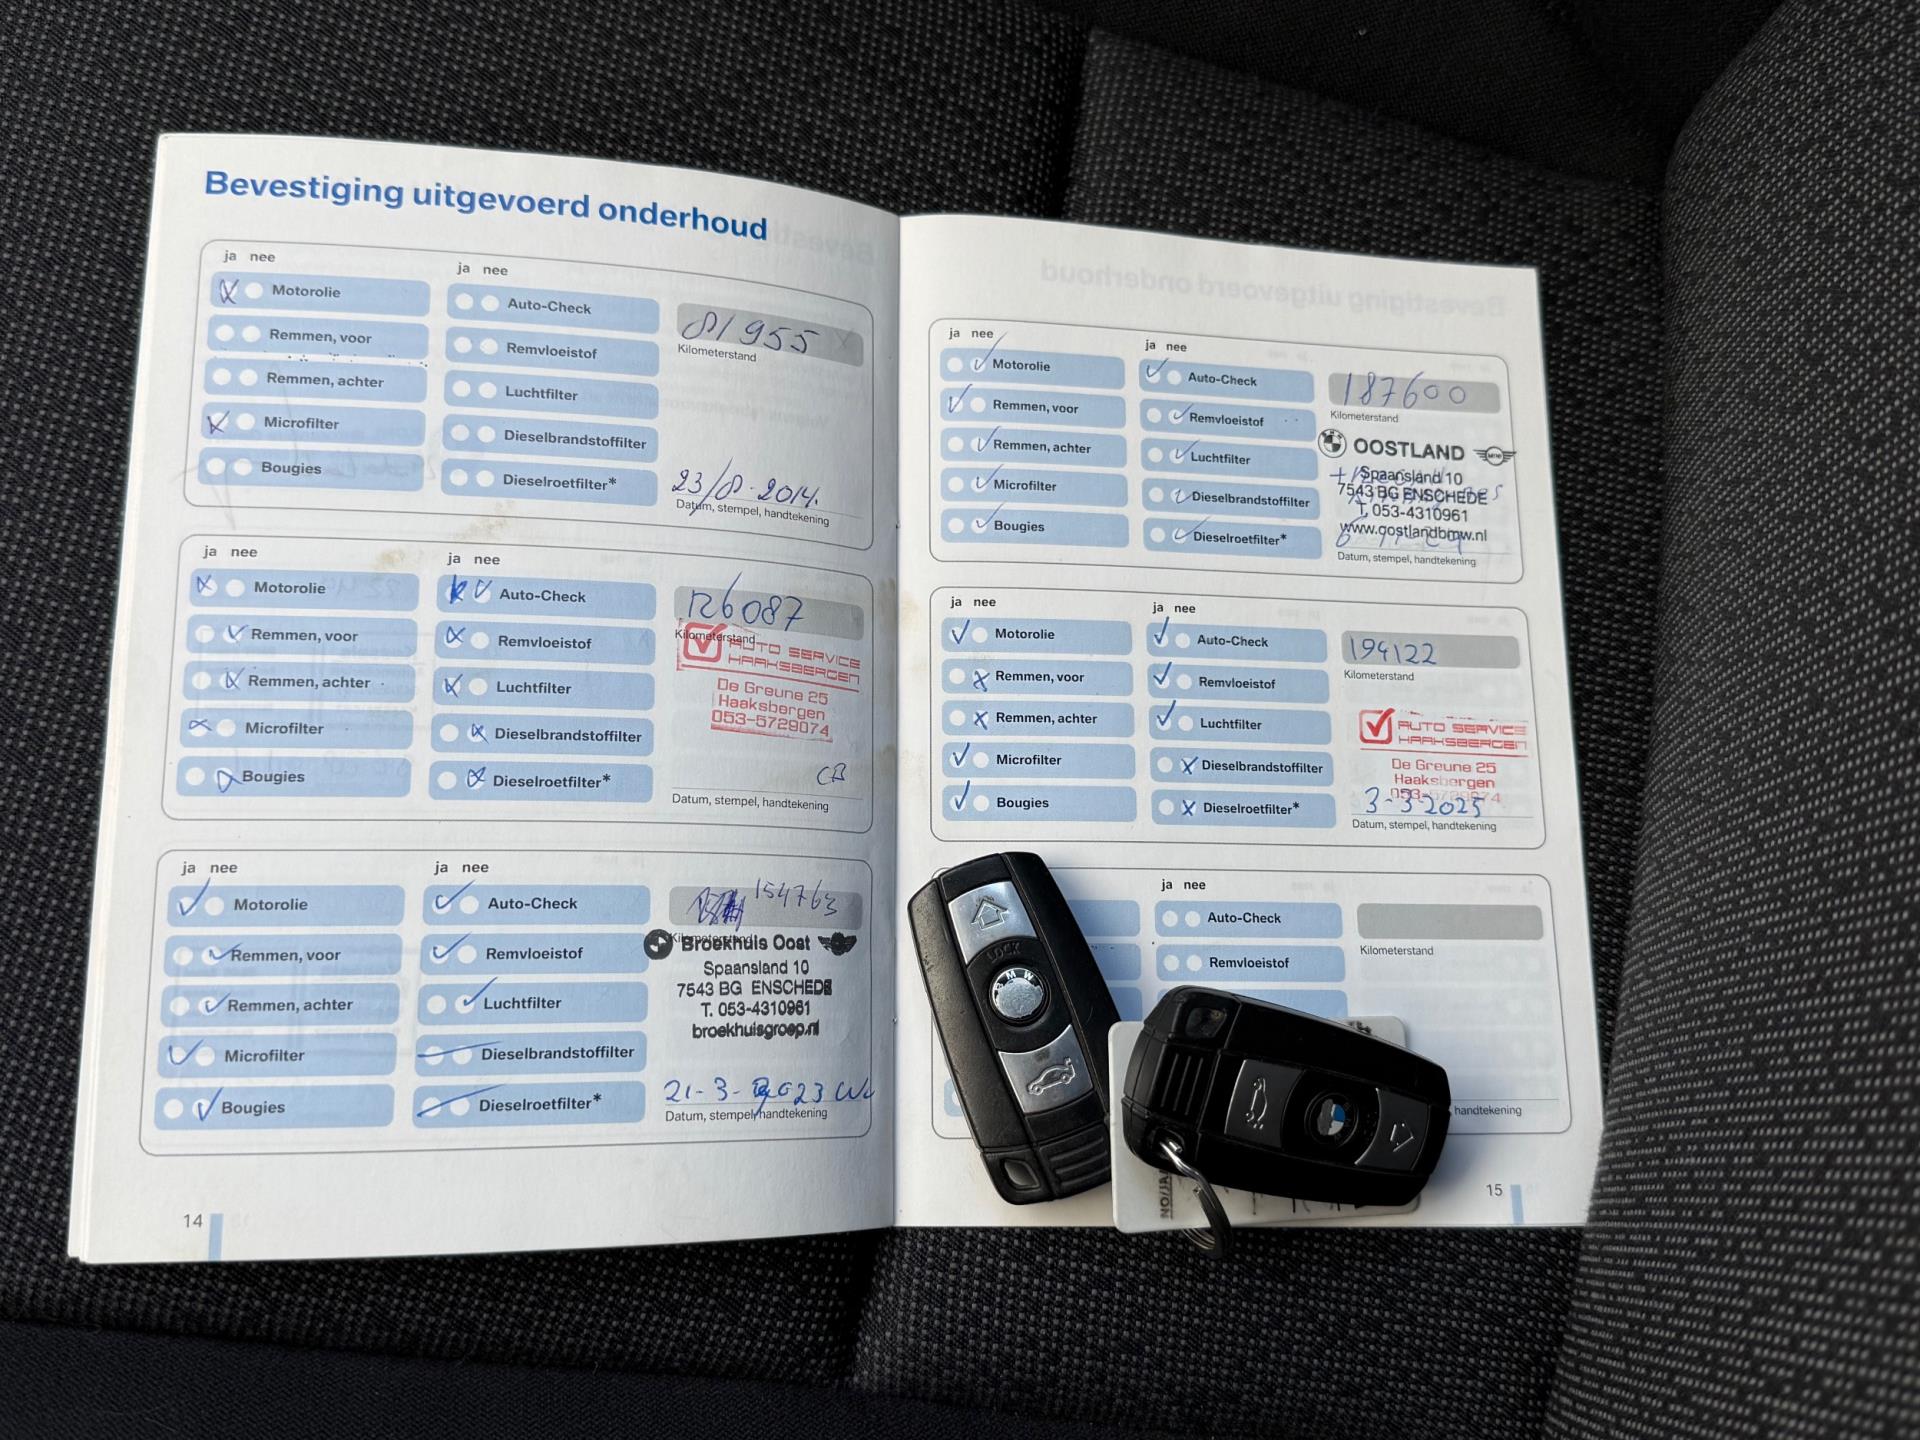 Bevestiging uitgevoerd onderhoud
ja nee
Motorolie
Remmen, voor
Remmen, achter
Microfilter
Bougies
ja nee
Auto-Check
Remvloeistof
Luchtfilter
Dieselbrandstoffilter
Dieselroetfilter*
81955
Kilometerstand
23/8-2014.
Datum, stempel, handtekening
ja nee
Motorolie
Remmen, voor
Remmen, achter
Microfilter
Bougies
ja nee
Auto-Check
Remvloeistof
Luchtfilter
Dieselbrandstoffilter
Dieselroetfilter*
126087
Kilometerstand
AUTO SERVICE
HAAKSBERGEN
De Greune 25
Haaksbergen
053-5729074
CB
Datum, stempel, handtekening
ja nee
Motorolie
Remmen, voor
Remmen, achter
Microfilter
Bougies
ja nee
Auto-Check
Remvloeistof
Luchtfilter
Dieselbrandstoffilter
Dieselroetfilter*
154763
Kilometerstand
Broekhuis Oost
Spaansland 10
7543 BG ENSCHEDE
T. 053-4310961
broekhuisgroep.nl
21-3-2023
Datum, stempel, handtekening
14
ja nee
Motorolie
Remmen, voor
Remmen, achter
Microfilter
Bougies
ja nee
Auto-Check
Remvloeistof
Luchtfilter
Dieselbrandstoffilter
Dieselroetfilter*
187600
Kilometerstand
OOSTLAND
MINI
Spaansland 10
7543 BG ENSCHEDE
T. 053-4310961
www.oostlandbmw.nl
Datum, stempel, handtekening
ja nee
Motorolie
Remmen, voor
Remmen, achter
Microfilter
Bougies
ja nee
Auto-Check
Remvloeistof
Luchtfilter
Dieselbrandstoffilter
Dieselroetfilter*
194122
Kilometerstand
AUTO SERVICE
HAAKSBERGEN
De Greune 25
Haaksbergen
053-5729074
3-3-2025
Datum, stempel, handtekening
ja nee
Auto-Check
Remvloeistof
Kilometerstand
handtekening
LOCK
BMW
15